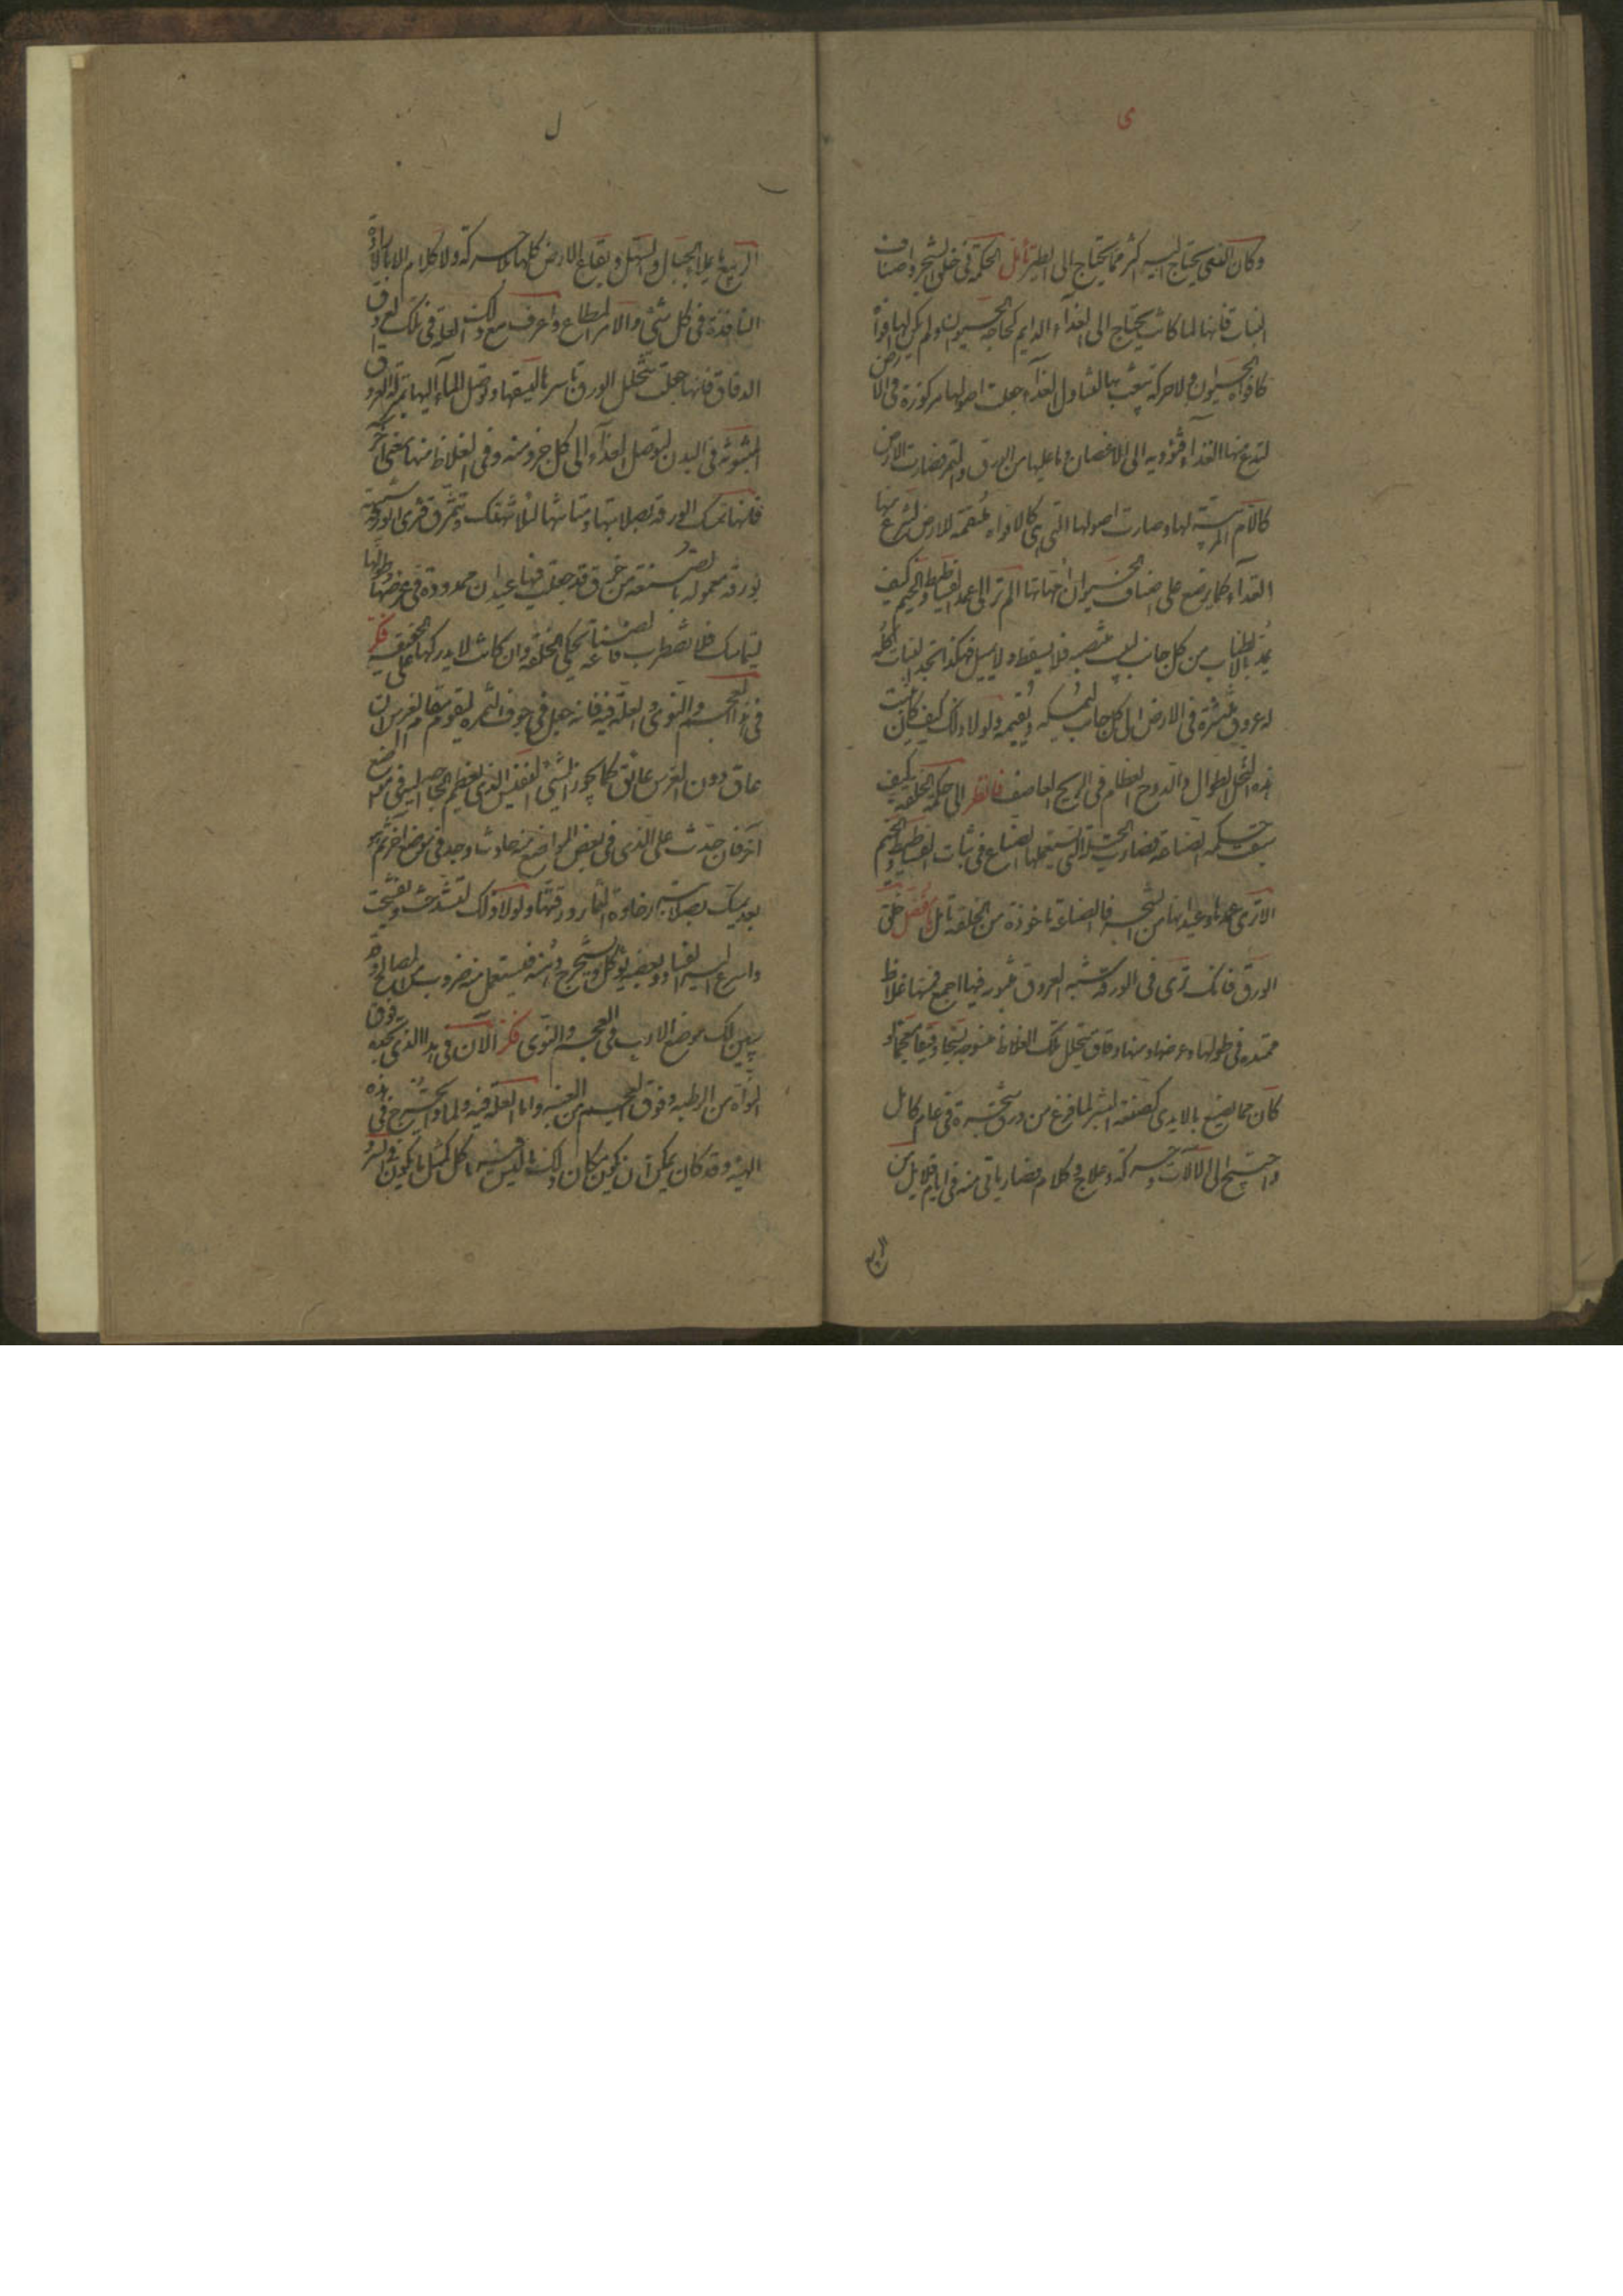 ى
وكان القصى يحتاج اليه اكثر مما يحتاج الى الطير تأمل الحكمة فى خلق الشجر واصناف
النبات فانها لما كانت يحتاج الى الغذاء الدايم كحاجة الحيوان ولم يكن لها افواه
كافواه الحيوان ولا حركة تنبعث بها لتناول الغذاء جعلت اصولها مركوزة فى الارض
لتنزع منها الغذاء فتؤديه الى الاغصان وما عليها من الورق والثمر فصارت الارض
كالام المربية لها وصارت اصولها التى هى كالافواه ملتقمة للارض لتنزع منها
الغذاء كما يرضع على اصناف الحيوان امهاتها الم تر الى عمد الفساطيط والخيم كيف
يمد بالاطناب من كل جانب ليثبت منتصبه فلا يسقط ولا يميل فهكذا تجد النبات كله
له عروق منتشرة فى الارض الى كل جانب لتمسكه وتقيمه ولولا ذلك كيف كان يثبت
هذه النخل الطوال والدوح العظام فى الريح العاصف فانظر الى حكمة الخلقة كيف
سبقت حكمة الصناعة فصارت الحيلة التى يستعملها الصناع فى ثبات الفساطيط والخيم
الا ترى عمدها وعيدانها من الشجر فالصناعة ماخوذة من الخلقة تأمل يا مفضل خلق
الورق فانك ترى فى الورقة شبه العروق مبثوثه فيها اجمع فمنها غلاظ
ممتدة فى طولها وعرضها ومنها دقاق يتخلل تلك الغلاظ منسوجه نسجا دقيقا معجما لو
كان مما يصنع بالايدى كصنعة البشر لما فرغ من ورق شجرة فى عام كامل
واحتيج الى الالات وحركة وعلاج وكلام فصار ياتى منه فى ايام قلايل من
الربيع
ل
الربيع ما يملا الجبال والسهل وبقاع الارض كلها بلا حركة ولا كلام الا بالارادة
النافذة فى كل شئ والامر المطاع واعرف مع ذلك العلة فى تلك العروق
الدقاق فانها جعلت تتخلل الورق باسرها لتسقيها وتوصل الماء اليها بمنزلة العروق
المبثوثة فى البدن لتوصل الغذاء الى كل جزو منه وفى الغلاظ منها معنى اخر
فانها تمسك الورقة بصلابتها ومتانتها لئلا تنهتك وتتمزق فترى الورقة شبيهة
بورقة معمولة بالصنعة من خرق قد جعلت فيها عيدان ممدودة فى عرضها وطولها
لتتماسك فلا تضطرب فالصناعة تحكى الخلقة وان كانت لا يدركها على الحقيقة فكر
فى هذا العجم والنوى والعلة فيه فانه جعل فى جوف الثمرة ليقوم مقام الغرس ان
عاق دون الغرس عائق كما يحرز الشئ النفيس الذى يعظم الحاجة اليه فى مواضع
اخر فان حدث على الذى فى بعض المواضع منه حادث وجد فى موضع اخر ثم هو
بعد يمسك بصلابته رخاوة الثمار ورقتها ولولا ذلك لتشدخت وتفسخت
واسرع اليها الفساد وبعضه يؤكل ويستخرج دهنه فيستعمل منه ضروب من المصالح وقد
تبين لك موضع الارب فى العجم والنوى فكر الان فى هذا الذى تجده فوق
النواة من الرطبة وفوق العجم من العنبة واما العلة فيه ولماذا يخرج فى هذه
الهيئة وقد كان يمكن ان يكون مكان ذلك ما ليس فيه ماكل كمثل ما يكون فى السرو